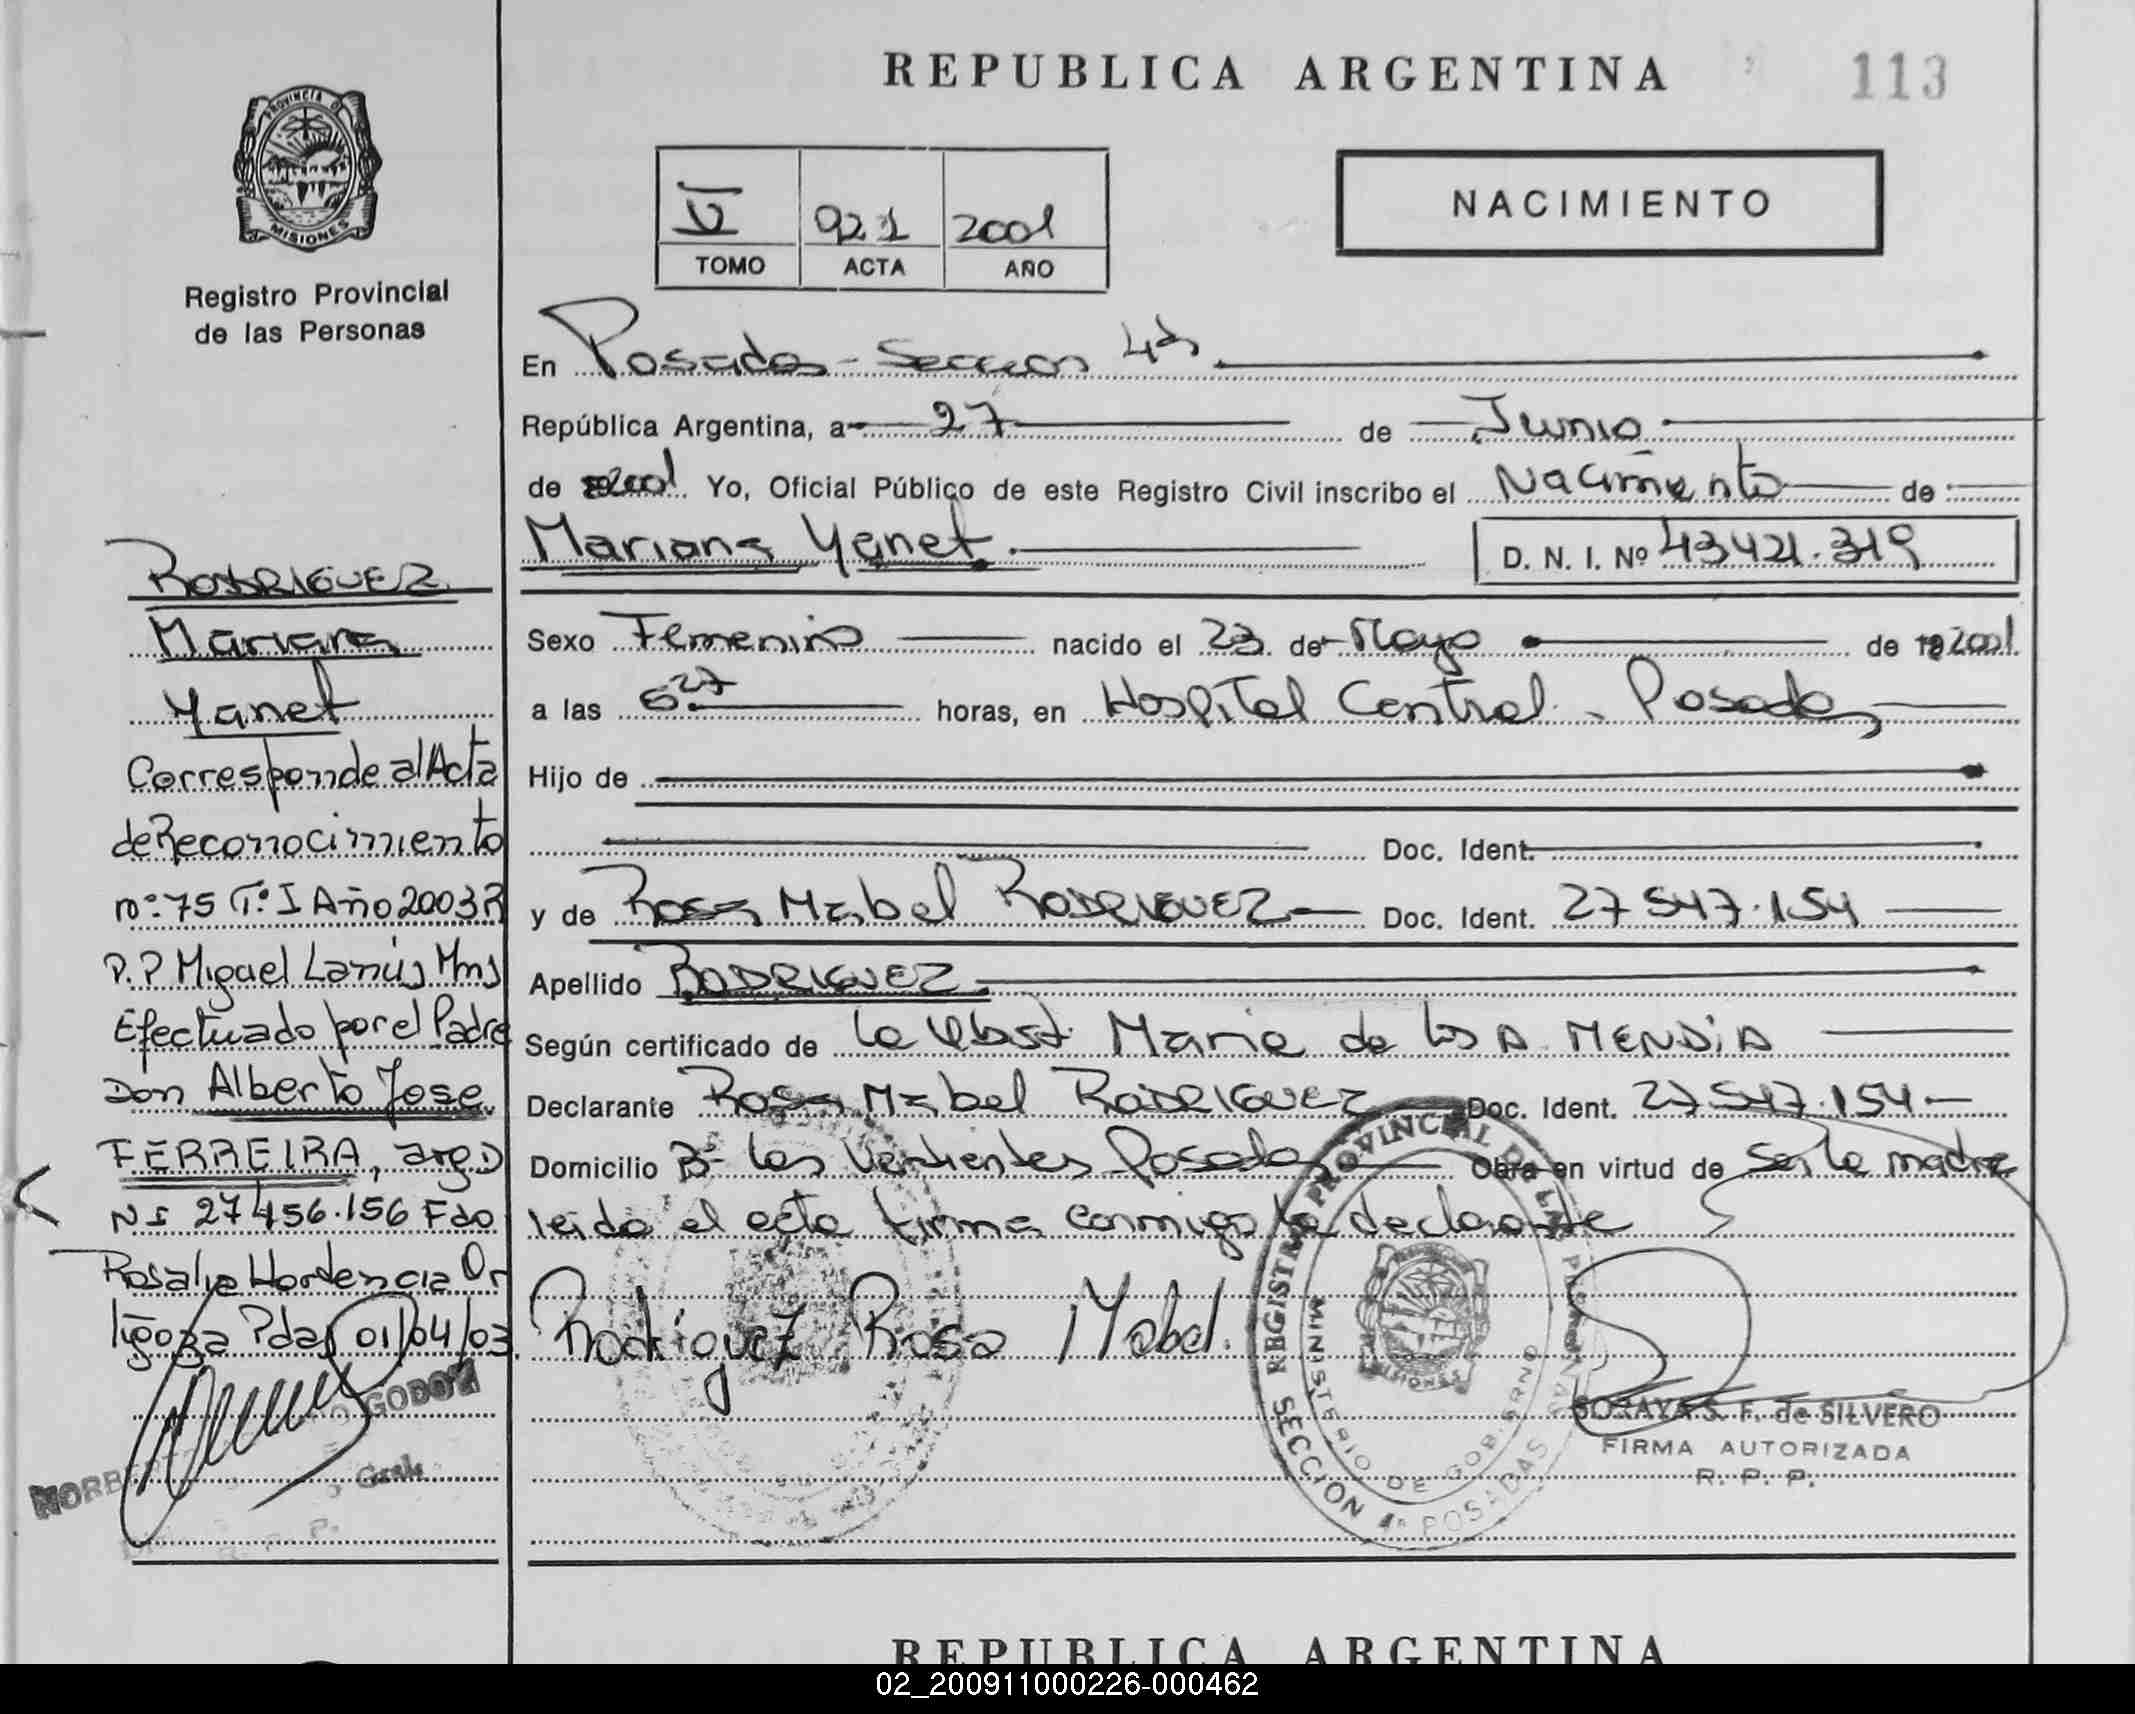 REPUBLICA ARGENTINA
113
PROVINCIA DE
MISIONES
Registro Provincial
de las Personas
V 921 2001
TOMO ACTA AÑO
NACIMIENTO
En Posadas - Seccion 4ta
República Argentina, a 27 de Junio
de 2001 Yo, Oficial Público de este Registro Civil inscribo el Nacimiento de
Mariana Yanet. D. N. I. Nº 43421.319
Sexo Femenino nacido el 23 de Mayo de 192001
a las 6.27 horas, en Hospital Central - Posadas
Hijo de
Doc. Ident.
y de Rosa Mabel RODRIGUEZ Doc. Ident. 27547.154
Apellido RODRIGUEZ.
Según certificado de la Obst. Maria de los A. MENDiA
Declarante Rosa Mabel RODRIGUEZ Doc. Ident. 27547.154
Domicilio Bº Las Vertientes Posadas Obra en virtud de ser la madre
leido el acta firma conmigo la declarante
Rodriguez Rosa Mabel.
RODRIGUEZ
Mariana
Yanet
Corresponde al Acta
de Reconocimiento
nº 75 Tº I Año 2003 R
P.P Miguel Lanús Mns
Efectuado por el Padre
Don Alberto Jose
FERREIRA, arg. D
NI 27456.156 Fdo
Rosalia Hortencia Or
tigoza Pdas 01/04/03.
GODOY
Gral.
REGISTRO PROVINCIAL DE LAS PERSONAS
SECCION 4ª POSADAS
MINISTERIO DE GOBIERNO
MISIONES
SORAYA S. F. de SILVERO
FIRMA AUTORIZADA
R. P. P.
REPUBLICA ARGENTINA
02_200911000226-000462